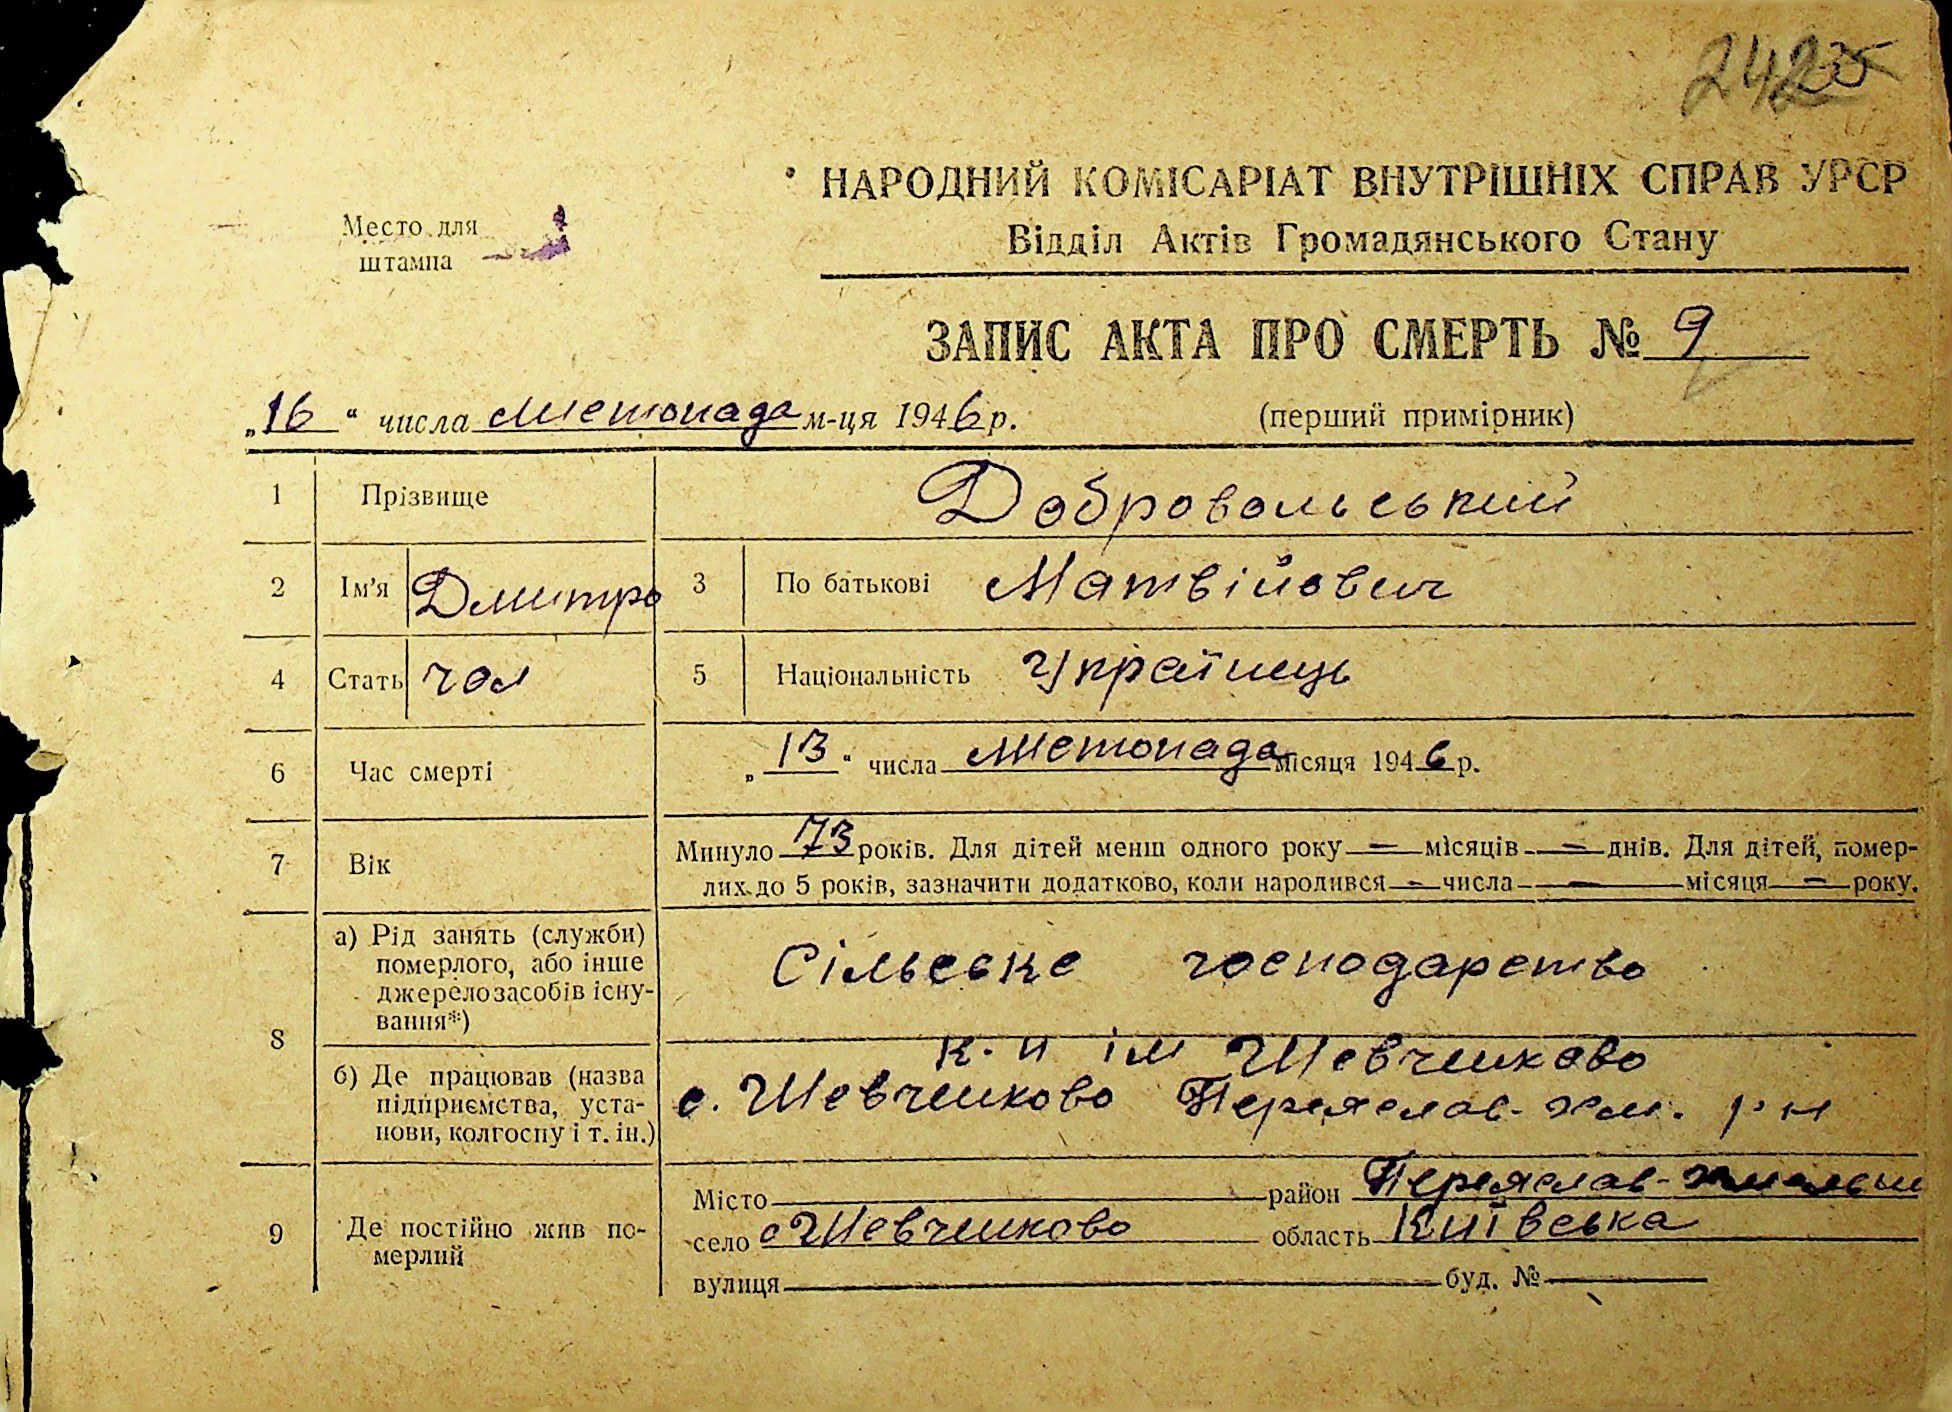 242
НАРОДНИЙ КОМІСАРІАТ ВНУТРІШНІХ СПРАВ УРСР
Відділ Актів Громадянського Стану
Место для
штампа
ЗАПИС АКТА ПРО СМЕРТЬ № 9
„16“ числа листопада м-ця 1946 р.
(перший примірник)
1 Прізвище Добровольський
2 Ім'я Дмитро 3 По батькові Матвійович
4 Стать чол 5 Національність Українець
6 Час смерті „13“ числа листопада місяця 1946 р.
7 Вік Минуло 73 років. Для дітей менш одного року — місяців — днів. Для дітей, помер-
лих до 5 років, зазначити додатково, коли народився — числа — місяця — року.
8 а) Рід занять (служби)
померлого, або інше
джерело засобів існу-
вання*)
Сільське господарство
б) Де працював (назва
підприємства, уста-
нови, колгоспу і т. ін.)
к-п ім Шевченково
с. Шевченково Переяслав-хм. р-н
9 Де постійно жив по-
мерлий
Місто — район Переяслав-
село с Шевченково область Київська
вулиця — буд. № —